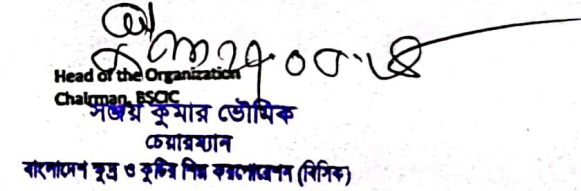 Head of the Organization
Chairman, BSCIC
সঞ্জয় কুমার ভৌমিক
চেয়ারম্যান
বাংলাদেশ ক্ষুদ্র ও কুটির শিল্প করপোরেশন (বিসিক)